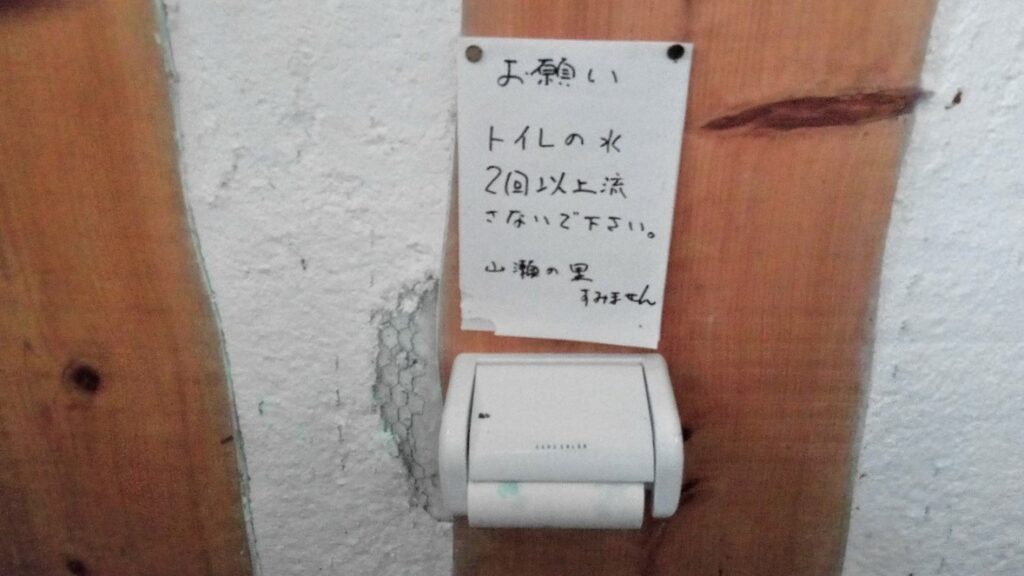 お願い
トイレの水
2回以上流
さないで下さい。
山瀬の里
すみません